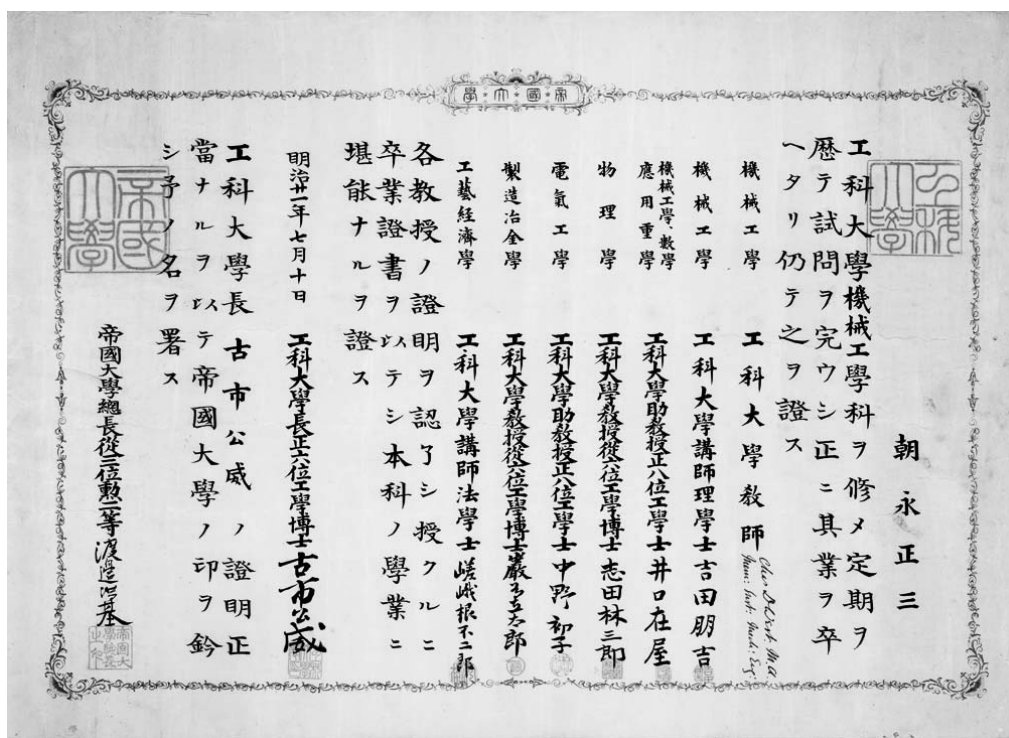 帝國大學
朝永正三
工科大學機械工學科ヲ修メ定期ヲ
歷テ試問ヲ完ウシ正ニ其業ヲ卒
ヘタリ仍テ之ヲ證ス
機械工學 工科大學教師
機械工學 工科大學講師理學士吉田朋吉
機械工學、數學
應用重學 工科大學助教授正八位工學士井口在屋
物理學 工科大學教授從六位工學博士志田林三郎
電氣工學 工科大學助教授正八位工學士中野初子
製造冶金學 工科大學教授從六位工學博士巖谷立太郎
工藝經濟學 工科大學講師法學士嵯峨根不二郎
各教授ノ證明ヲ認了シ授クルニ
卒業證書ヲ以テシ本科ノ學業ニ
堪能ナルヲ證ス
明治廿一年七月十日 工科大學長正六位工學博士古市公威
工科大學長古市公威ノ證明正
當ナルヲ以テ帝國大學ノ印ヲ鈐
シ予ノ名ヲ署ス
帝國大學總長從三位勲二等渡邉洪基
工科大學
帝國大學